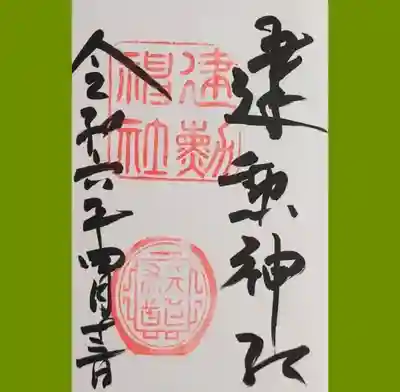 建勲神社
令和六年四月
建勲
神社